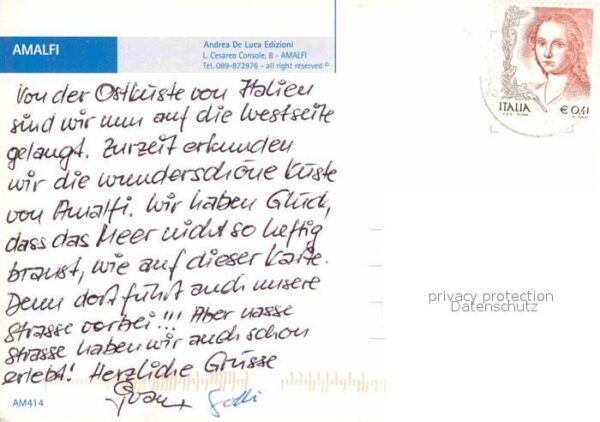 AMALFI
Andrea De Luca Edizioni
L. Cesareo Console, 8 - AMALFI
Tel. 089-872976 - all right reserved ©
ITALIA
€ 0,41
Von der Ostküste von Italien
sind wir nun auf die Westseite
gelangt. Zurzeit erkunden
wir die wunderschöne Küste
von Amalfi. Wir haben Glück,
dass das Meer nicht so heftig
braust, wie auf dieser Karte.
Denn dort führt auch unsere
Strasse vorbei!!! Aber nasse
Strasse haben wir auch schon
erlebt! Herzliche Grüsse
privacy protection
Datenschutz
AM414